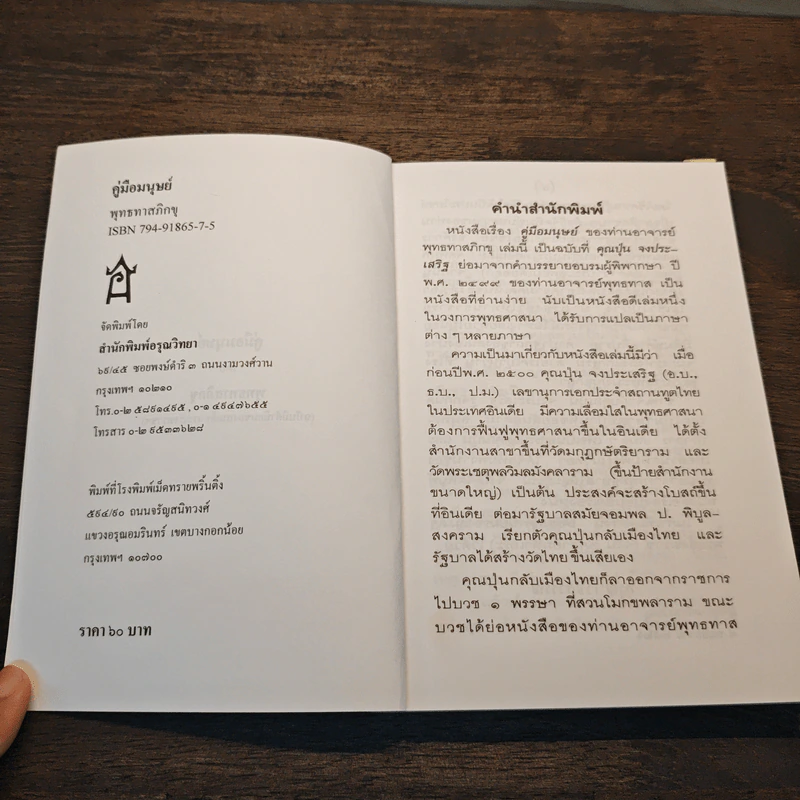 คู่มือมนุษย์
พุทธทาสภิกขุ
ISBN 794-91865-7-5
จัดพิมพ์โดย
สำนักพิมพ์อรุณวิทยา
๖๙/๔๕ ซอยพงษ์ดำริ ๓ ถนนงามวงศ์วาน
กรุงเทพฯ ๑๐๒๑๐
โทร.๐-๒ ๕๘๙๑๔๙๕ , ๐-๑ ๔๙๔๗๖๕๕
โทรสาร ๐-๒ ๙๕๓๓๖๒๘
พิมพ์ที่โรงพิมพ์เม็ดทรายพริ้นติ้ง
๕๙๔/๙๐ ถนนจรัญสนิทวงศ์
แขวงอรุณอมรินทร์ เขตบางกอกน้อย
กรุงเทพฯ ๑๐๗๐๐
ราคา ๖๐ บาท
คำนำสำนักพิมพ์
หนังสือเรื่อง คู่มือมนุษย์ ของท่านอาจารย์
พุทธทาสภิกขุ เล่มนี้ เป็นฉบับที่ คุณปุ่น จงประ-
เสริฐ ย่อมาจากคำบรรยายอบรมผู้พิพากษา ปี
พ.ศ. ๒๔๙๙ ของท่านอาจารย์พุทธทาส เป็น
หนังสือที่อ่านง่าย นับเป็นหนังสือดีเล่มหนึ่ง
ในวงการพุทธศาสนา ได้รับการแปลเป็นภาษา
ต่าง ๆ หลายภาษา
ความเป็นมาเกี่ยวกับหนังสือเล่มนี้มีว่า เมื่อ
ก่อนปีพ.ศ. ๒๕๐๐ คุณปุ่น จงประเสริฐ (อ.บ.,
ธ.บ., ป.ม.) เลขานุการเอกประจำสถานทูตไทย
ในประเทศอินเดีย มีความเลื่อมใสในพุทธศาสนา
ต้องการฟื้นฟูพุทธศาสนาขึ้นในอินเดีย ได้ตั้ง
สำนักงานสาขาขึ้นที่วัดมกุฎกษัตริยาราม และ
วัดพระเชตุพลวิมลมังคลาราม (ขึ้นป้ายสำนักงาน
ขนาดใหญ่) เป็นต้น ประสงค์จะสร้างโบสถ์ขึ้น
ที่อินเดีย ต่อมารัฐบาลสมัยจอมพล ป. พิบูล-
สงคราม เรียกตัวคุณปุ่นกลับเมืองไทย และ
รัฐบาลได้สร้างวัดไทยขึ้นเสียเอง
คุณปุ่นกลับเมืองไทยก็ลาออกจากราชการ
ไปบวช ๑ พรรษา ที่สวนโมกขพลาราม ขณะ
บวชได้ย่อหนังสือของท่านอาจารย์พุทธทาส